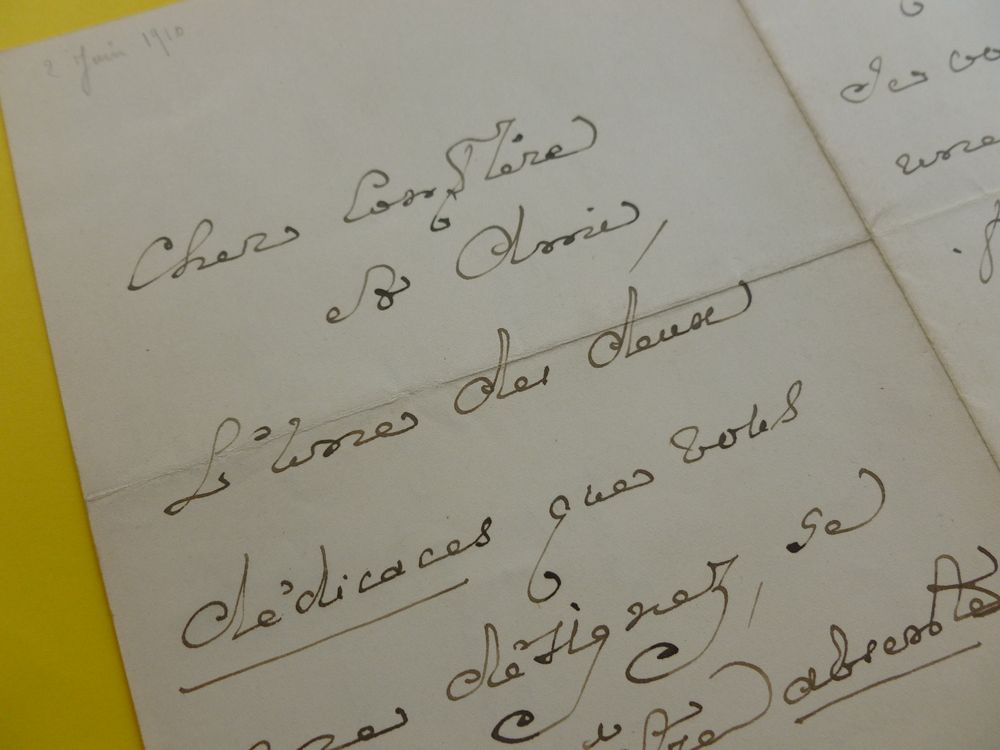 2 Juin 1910
Cher Confrère
et Ami,
L'une des deux
dédicaces que vous
me désignez, se
être absente
de vo
une